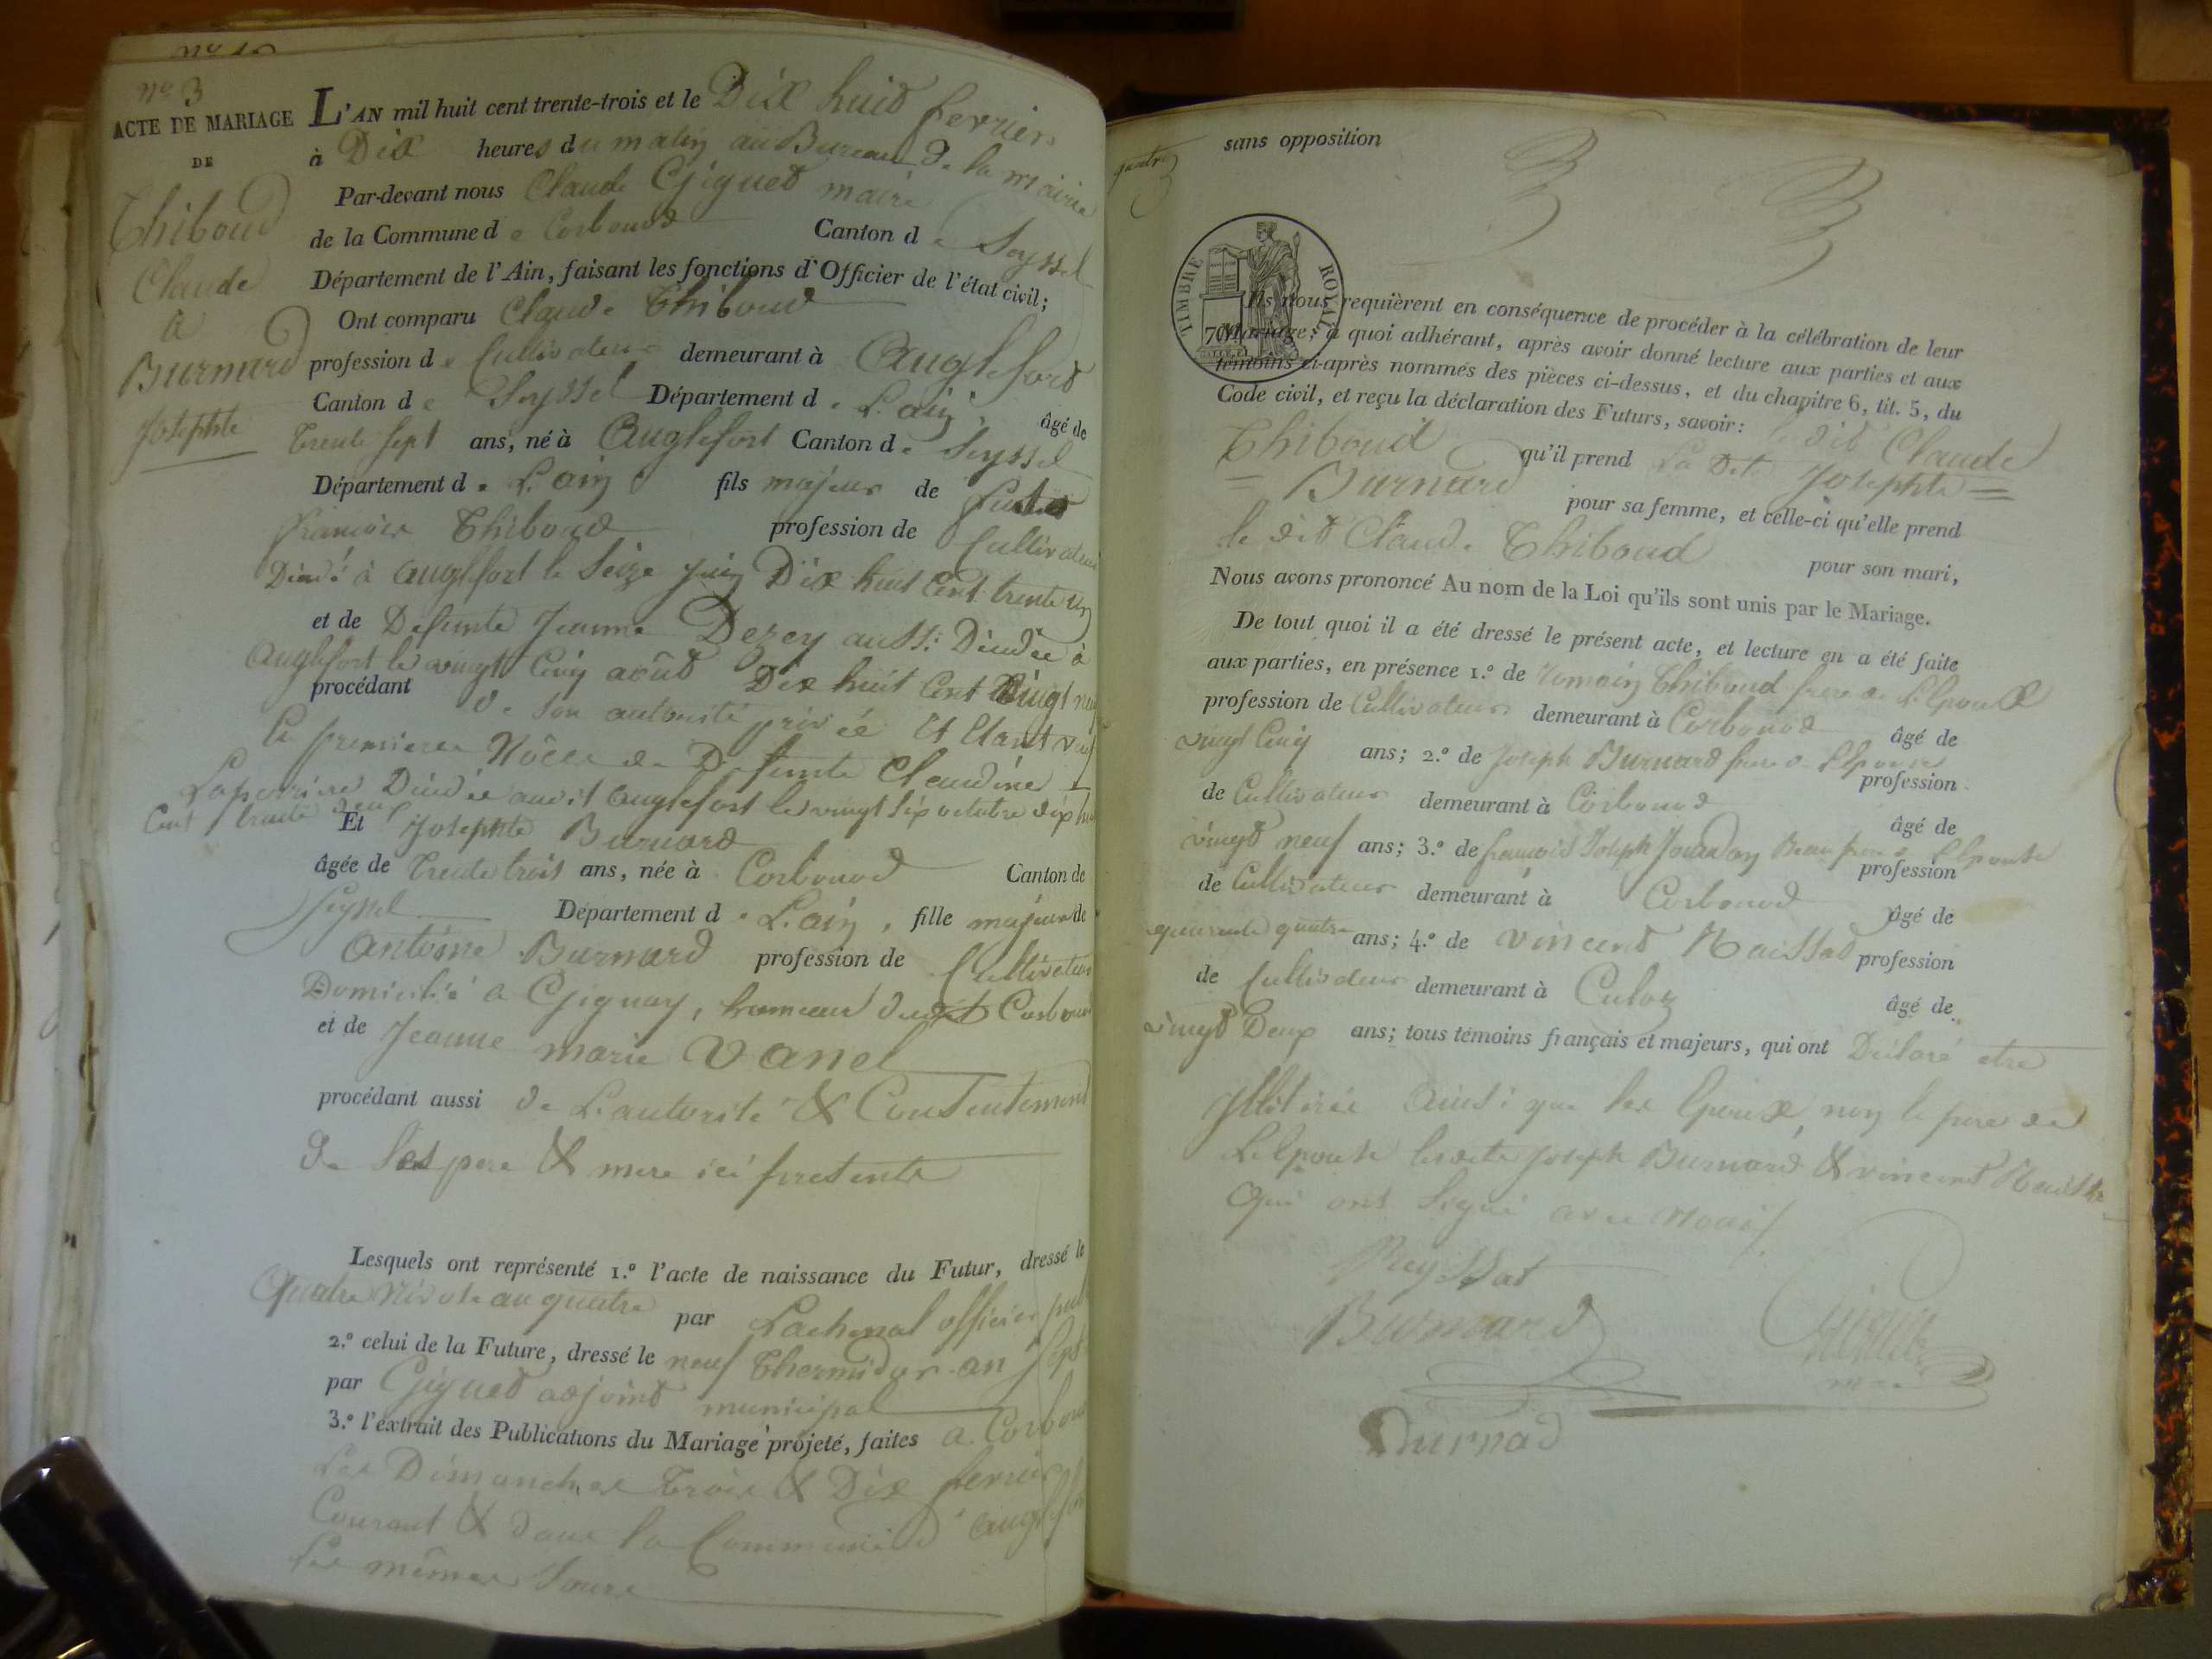 nº 3
ACTE DE MARIAGE
DE
Thiboud
Claude
à
Burnard
Josephte
L'AN mil huit cent trente-trois et le Dix huit fevrier
à Dix heures du matin au Bureau de la mairie
Par-devant nous Claude Giguet maire
de la Commune de Corbonod Canton de Seyssel
Département de l'Ain, faisant les fonctions d'Officier de l'état civil;
Ont comparu Claude Thiboud
profession de Cultivateur demeurant à Anglefort
Canton de Seyssel Département de L'ain, âgé de
trente sept ans, né à Anglefort Canton de Seyssel
Département de L'ain fils majeur de
françois Thiboud profession de Cultivateur
Décédé à anglefort le Seize juin Dix huit Cent trente un
et de Defunte Jeanne Dezey aussi Décédée à
Anglefort le vingt Cinq août Dix huit Cent vingt neuf
procédant de son autorité privée Et Etant veuf
En premiere Nôces de Defunte Claudine
Laperriere Décédée audit anglefort le vingt six octobre dix huit
Cent trente deux
Et Josephte Burnard
âgée de trente trois ans, née à Corbonod Canton de
Seyssel Département de L'ain, fille majeure de
Antoine Burnard profession de Cultivateur
Domicilié à Gignay, hameau dudit Corbonod
et de Jeanne marie Vanel
procédant aussi de L'autorité & Consentement
de Ses pere & mere ici presents
Lesquels ont représenté 1.º l'acte de naissance du Futur, dressé le
Quatre Nivose an quatre par Lachenal officier pub
2.º celui de la Future, dressé le neuf thermidor an sept
par Giguet adjoint municipal
3.º l'extrait des Publications du Mariage projeté, faites a Corbonod
Les Dimanches trois & Dix fevrier
Courant & dans la Commune d'anglefort
les mêmes Jours
sans opposition
TIMBRE ROYAL
Ils nous requièrent en conséquence de procéder à la célébration de leur
Mariage; à quoi adhérant, après avoir donné lecture aux parties et aux
témoins ci-après nommés des pièces ci-dessus, et du chapitre 6, tit. 5, du
Code civil, et reçu la déclaration des Futurs, savoir: le dit Claude
Thiboud qu'il prend La Dte Josephte
Burnard pour sa femme, et celle-ci qu'elle prend
le dit Claude Thiboud pour son mari,
Nous avons prononcé Au nom de la Loi qu'ils sont unis par le Mariage.
De tout quoi il a été dressé le présent acte, et lecture en a été faite
aux parties, en présence 1.º de Romain Thiboud frere de L'Epoux
profession de Cultivateur demeurant à Corbonod âgé de
vingt Cinq ans; 2.º de Joseph Burnard frere de L'Epouse profession
de Cultivateur demeurant à Corbonod âgé de
vingt neuf ans; 3.º de françois Joseph Jourdan Beau frere L'Epouse profession
de Cultivateur demeurant à Corbonod âgé de
quarente quatre ans; 4.º de vincent Raissat profession
de Cultivateur demeurant à Culoz âgé de
vingt Deux ans; tous témoins français et majeurs, qui ont Déclaré etre
Illitirée ainsi que les Epoux, non le pere de
L'Epouse lesdits Joseph Burnard & vincent Raissat
Qui ont Signé avec Nous
Reyssat
Burnard
Burnad